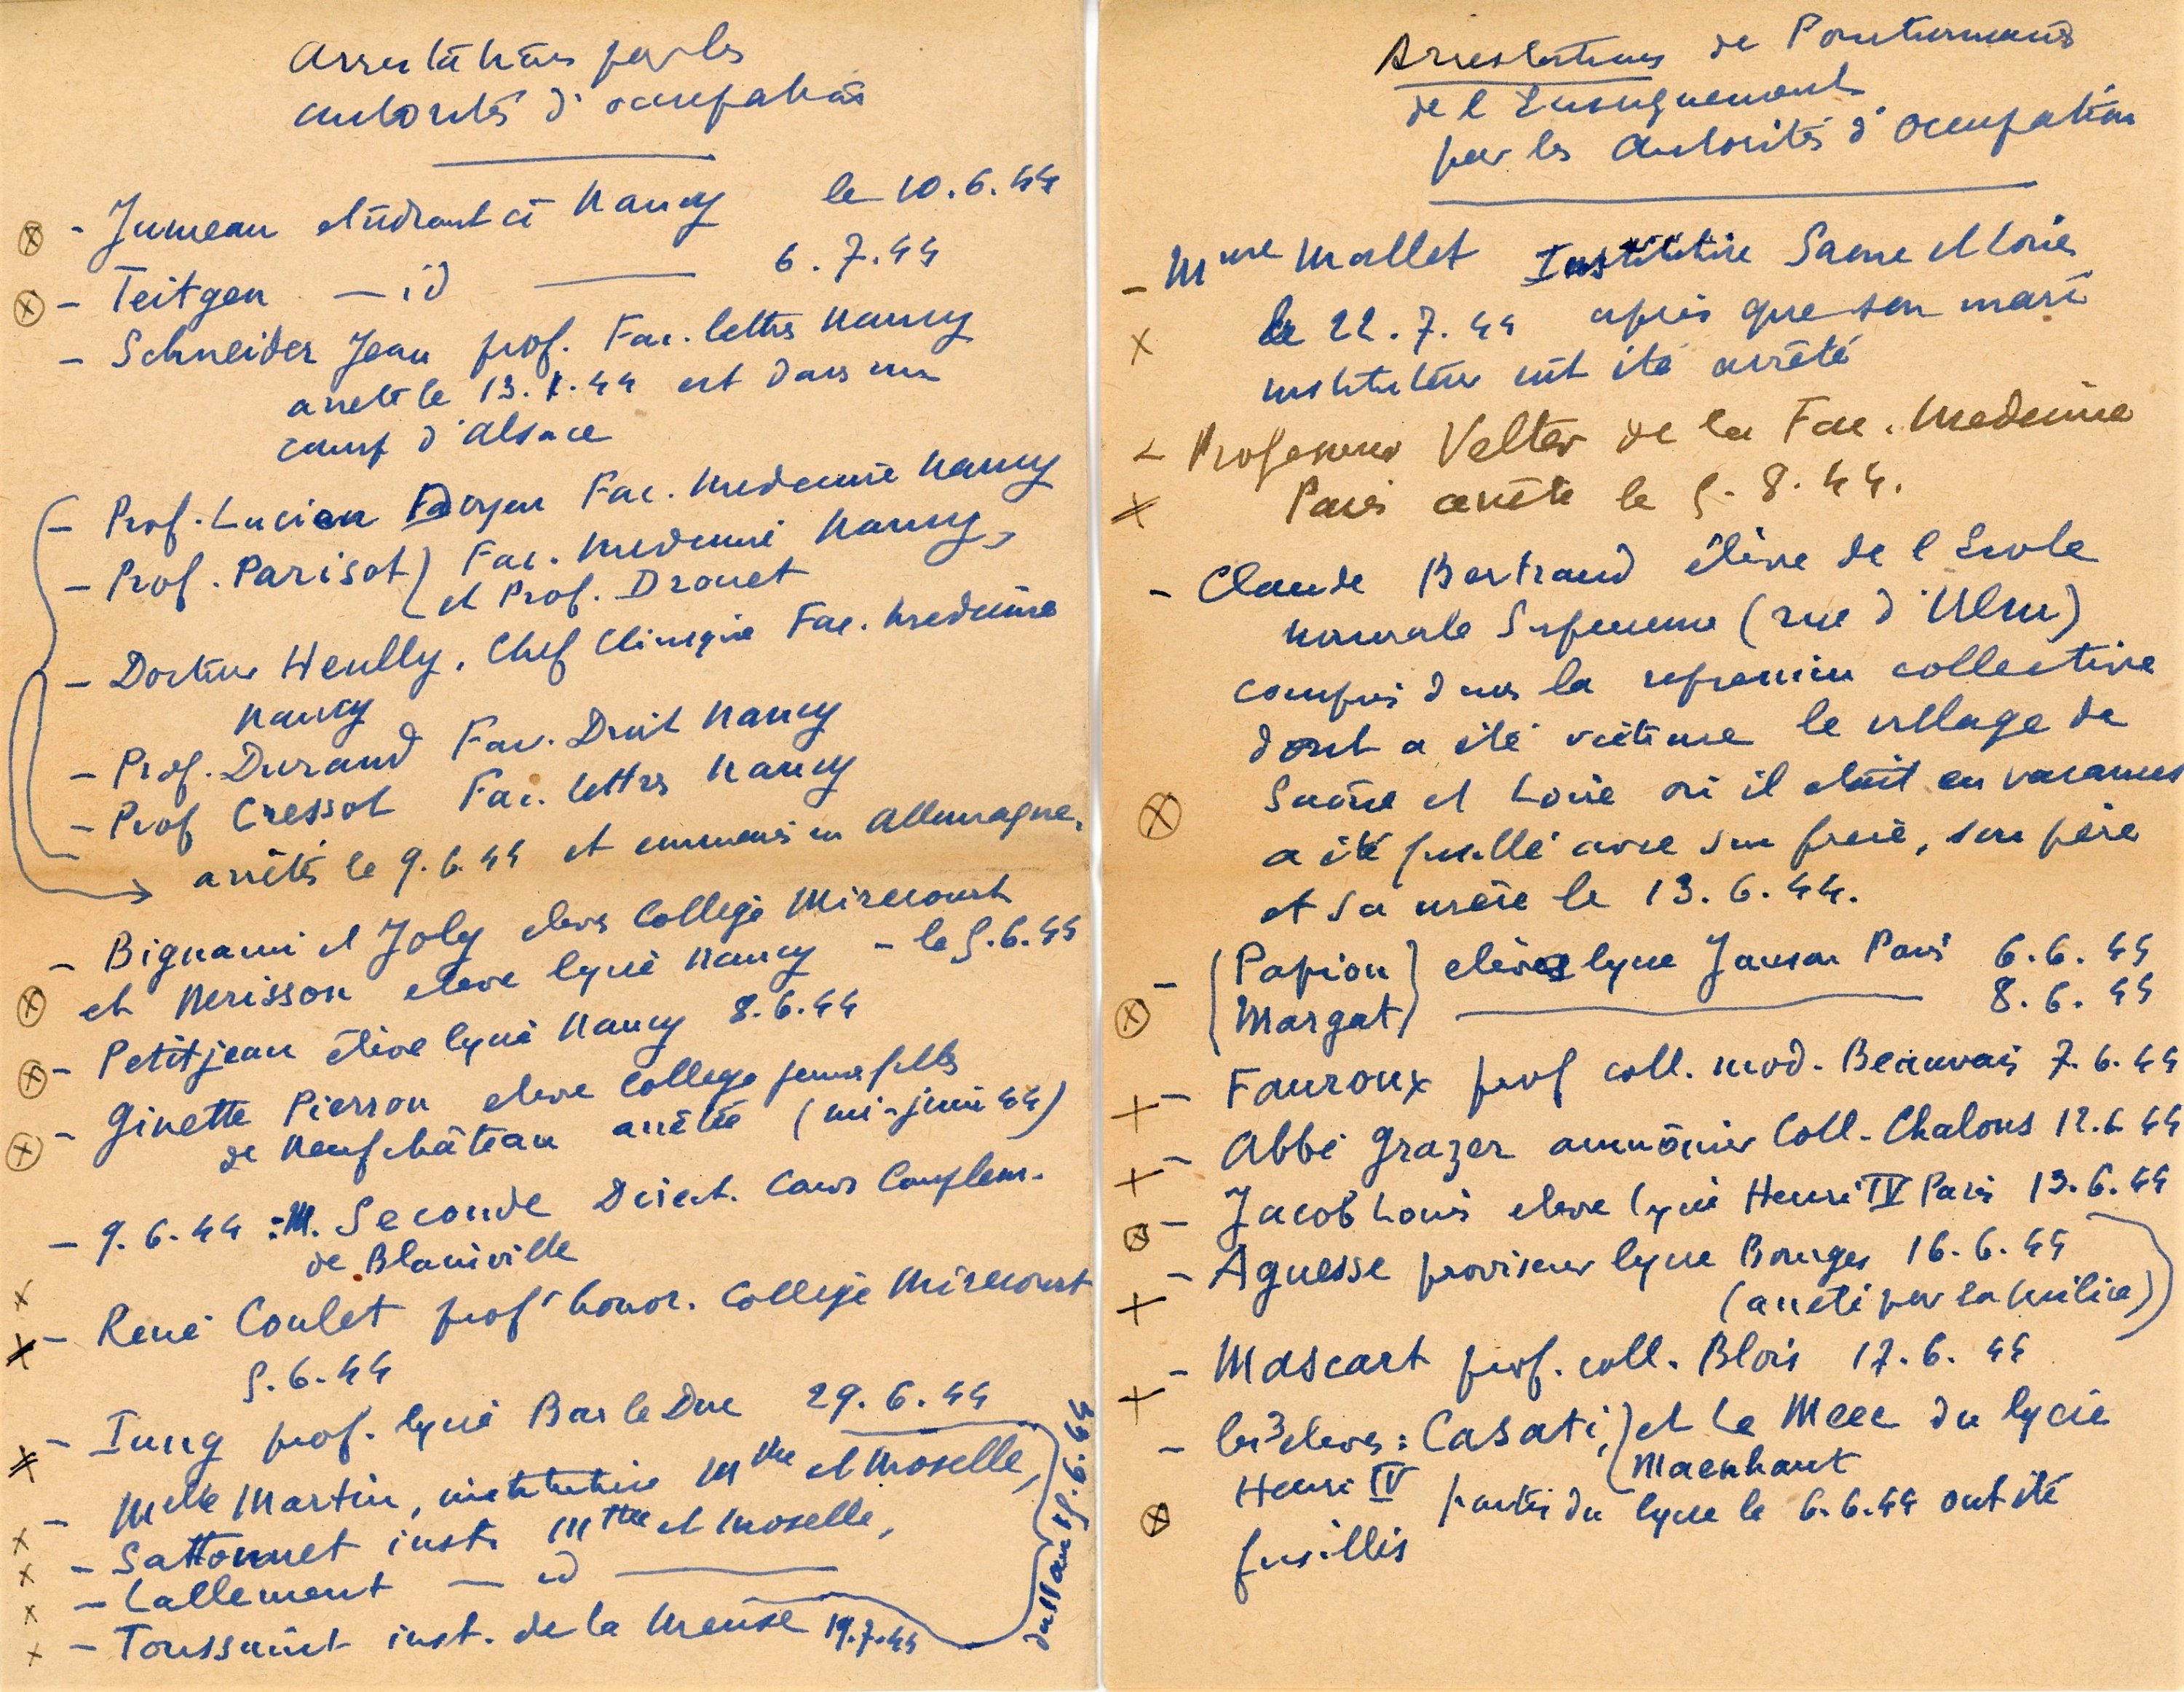 Arrestations par les
autorités d'occupation
- Jumeau étudiant à Nancy le 10.6.44
- Teitgen — id — 6.7.44
- Schneider Jean prof. Fac. lettres Nancy
arrêté le 13.1.44 est dans un
camp d'Alsace
- Prof. Lucien Doyen Fac. Medecine Nancy
- Prof. Parisot) Fac. Medecine Nancy,
et Prof. Drouet
- Docteur Heully, Chef Clinique Fac. Medecine
Nancy
- Prof. Durand Fac. Droit Nancy
- Prof Cressot Fac. lettres Nancy
arrêtés le 9.6.44 et emmenés en Allemagne.
- Bignami et Joly eleves College Mirecourt
et Nerisson eleve lycée Nancy - le 5.6.44
- Petitjean élève lycée Nancy 8.6.44
- Ginette Pierson eleve College jeunes filles
de Neufchâteau arrêtée (mi-juin 44)
- 9.6.44 : M. Seconde Direct. Cours Complem.
de Blainville
- René Coulet prof honor. College Mirecourt
5.6.44
- Iung prof. lycée Bar le Duc 29.6.44
- Melle Martin, institutrice Mthe et Moselle,
- Sattonnet inst. Mthe et Moselle,
- Lallement — id —
- Toussaint inst. de la Meuse 19.7.44
du 11 au 15.6.44
Arrestations de Fonctionnaires
de l'Enseignement
par les Autorités d'Occupation
- Mme Mallet Institutrice Saone et Loire
le 22.7.44 après que son mari
instituteur eût été arrêté
- Professeur Velter de la Fac. Medecine
Paris arrêté le 5.8.44.
- Claude Bertrand élève de l'Ecole
normale Superieure (rue d'Ulm)
compris dans la repression collective
dont a été victime le village de
Saône et Loire où il était en vacances
a été fusillé avec son frère, son père
et sa mère le 13.6.44.
- (Papion) elèves lycee Janson Paris 6.6.44
(Margat) — 8.6.44
- Fauroux prof coll. mod. Beauvais 7.6.44
- Abbé Grazer aumônier Coll. Chalons 12.6.44
- Jacob Louis eleve lycée Henri IV Paris 13.6.44
- Aguesse proviseur lycee Bourges 16.6.44
(arrêté par la Milice)
- Mascart prof. coll. Blois 17.6.44
- les 3 eleves : Casati, ) et Le Meec du lycée
( Maenhaut
Henri IV partis du lycee le 6.6.44 ont été
fusillés